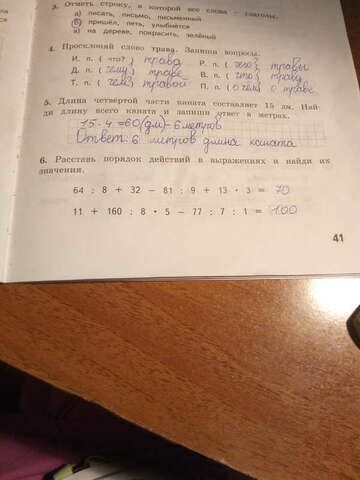 3. Отметь строку, в которой все слова – глаголы.
а) писать, письмо, письменный
б) пришёл, петь, улыбнётся
в) на дереве, покрасить, зелёный
4. Просклоняй слово трава. Запиши вопросы.
И. п. ( что? ) трава Р. п. ( чего? ) травы
Д. п. ( чему? ) траве В. п. ( что? ) траву
Т. п. ( чем? ) травой П. п. ( о чём? ) о траве
5. Длина четвёртой части каната составляет 15 дм. Най-
ди длину всего каната и запиши ответ в метрах.
15 · 4 = 60 (дм) – 6 метров
Ответ: 6 метров длина каната
6. Расставь порядок действий в выражениях и найди их
значения.
64 : 8 + 32 − 81 : 9 + 13 · 3 = 70
11 + 160 : 8 · 5 − 77 : 7 : 1 = 100
41